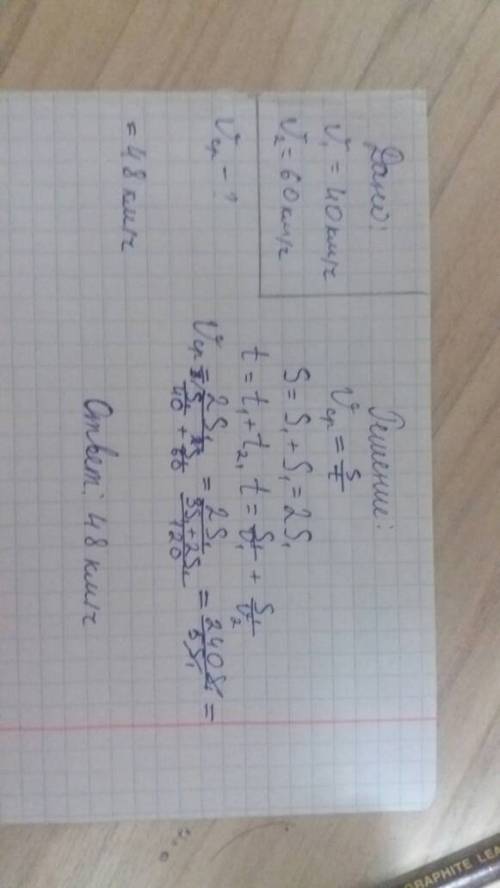 Дано:
V₁ = 40 км/ч
V₂ = 60 км/ч
Vср - ?
Решение:
Vср = S/t
S = S₁ + S₁ = 2S₁
t = t₁ + t₂, t = S₁/V₁ + S₁/V₂
Vср = 2S₁/(S₁/40 + S₁/60) = 2S₁/((3S₁+2S₁)/120) = 240S₁/5S₁ =
= 48 км/ч
Ответ: 48 км/ч
GRAPHITE LEA